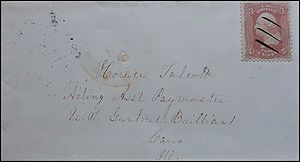 Horace Talcott
Acting Asst Paymaster
U.S. Gunboat Brilliant
Cairo
Ills.